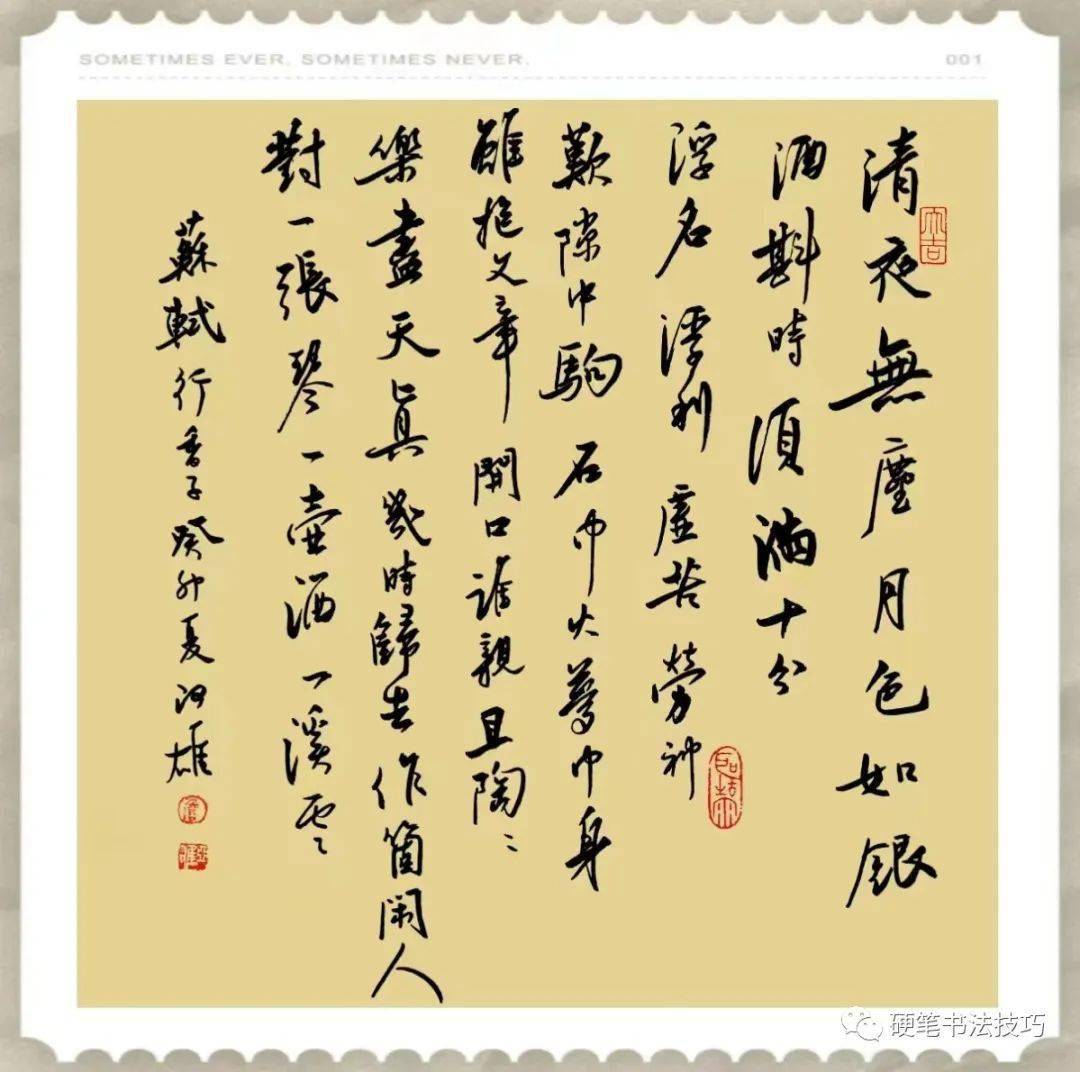 SOMETIMES EVER. SOMETIMES NEVER.
001
清夜無塵月色如銀
酒斟時須滿十分
浮名浮利虛苦勞神
歎隙中駒石中火夢中身
雖抱文章開口誰親且陶〻
樂盡天真幾時歸去作箇閑人
對一張琴一壺酒一溪雲
蘇軾行香子癸卯夏雄
大吉
硬笔书法技巧